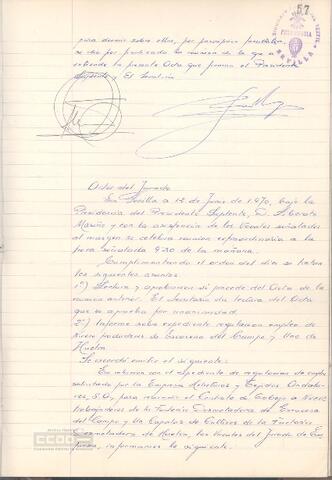 57
SEVILLA
para decidir sobre ellas, por
se da por finalizada la reunión de la que se
extiende la presente Acta que firman el Presidente
Suplente y El Secretario
Actas del Jurado
En Sevilla a 12 de Junio de 1.970, bajo la
Presidencia del Presidente Suplente, D. Liborato
y con la asistencia de los Vocales señalados
al margen se celebra reunión extraordinaria a la
hora señalada 9.30 de la mañana.
Cumplimentando el orden del día se tratan
los siguientes asuntos:
1º) Lectura y aprobación si procede del Acta de la
reunión anterior. El Secretario da lectura del Acta
que es aprobada por unanimidad.
2º) Informe sobre expediente regulación empleo de
nueve productores de Escacena del Campo y Uno de
Huelva
Se acordó emitir el siguiente:
En relación con el expediente de regulación de empleo
solicitado por la Empresa Hilaturas y Tejidos Andalu-
ces, S.A, para rescindir el Contrato de trabajo a Nueve
trabajadores de la Factoría Desmotadora de Escacena
del Campo y Un Capataz de Cultivos de la Factoría
Desmotadora de Huelva, los Vocales del Jurado de Em-
presa, informamos lo siguiente.
CCOO